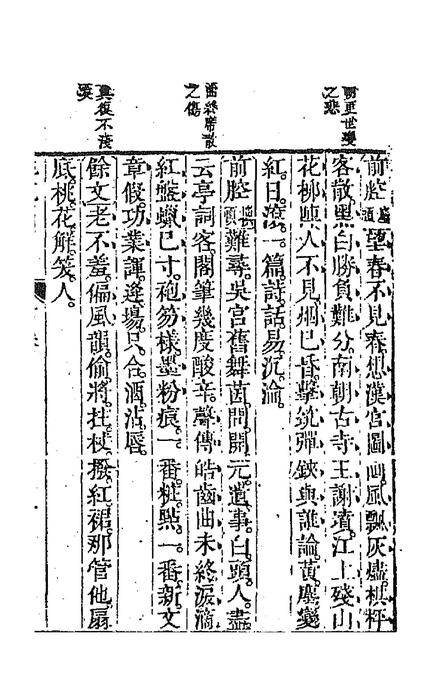 聞更世變
之悲
酒終席散
之傷
真復不淺
前腔換頭望春不見春想漢宮圖畫風飄灰燼棋枰
客散黑白勝負難分南朝古寺王謝墳江上殘山
花柳陣人不見烟已昏擊筑彈鋏與誰論黃塵變
紅日滾一篇詩話易沉淪
前腔換頭難尋吳宮舊舞茵問開元遺事白頭人盡
云亭詞客閣筆幾度酸辛聲傳皓齒曲未終淚滴
紅盤蠟已寸袍笏樣墨粉痕一番粧點一番新文
章假功業諢逢場只合酒沾唇
餘文老不羞偏風韻偷將拄杖撥紅裙那管他扇
底桃花解笑人